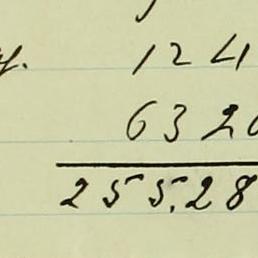 y. 124
6320
255.28